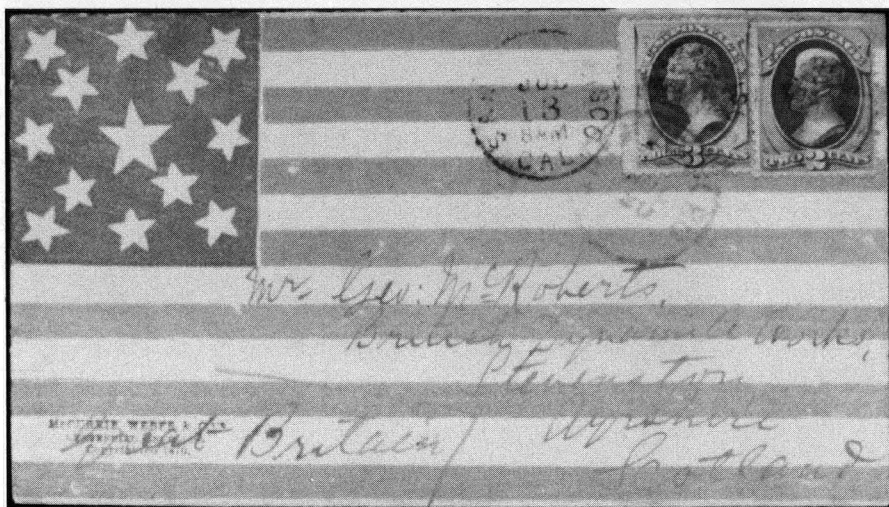 JUL
13
8 AM
CAL.
Mr. Geo: McRoberts,
British Dynamite Works,
Stevenston
Ayrshire
Scotland
Great Britain